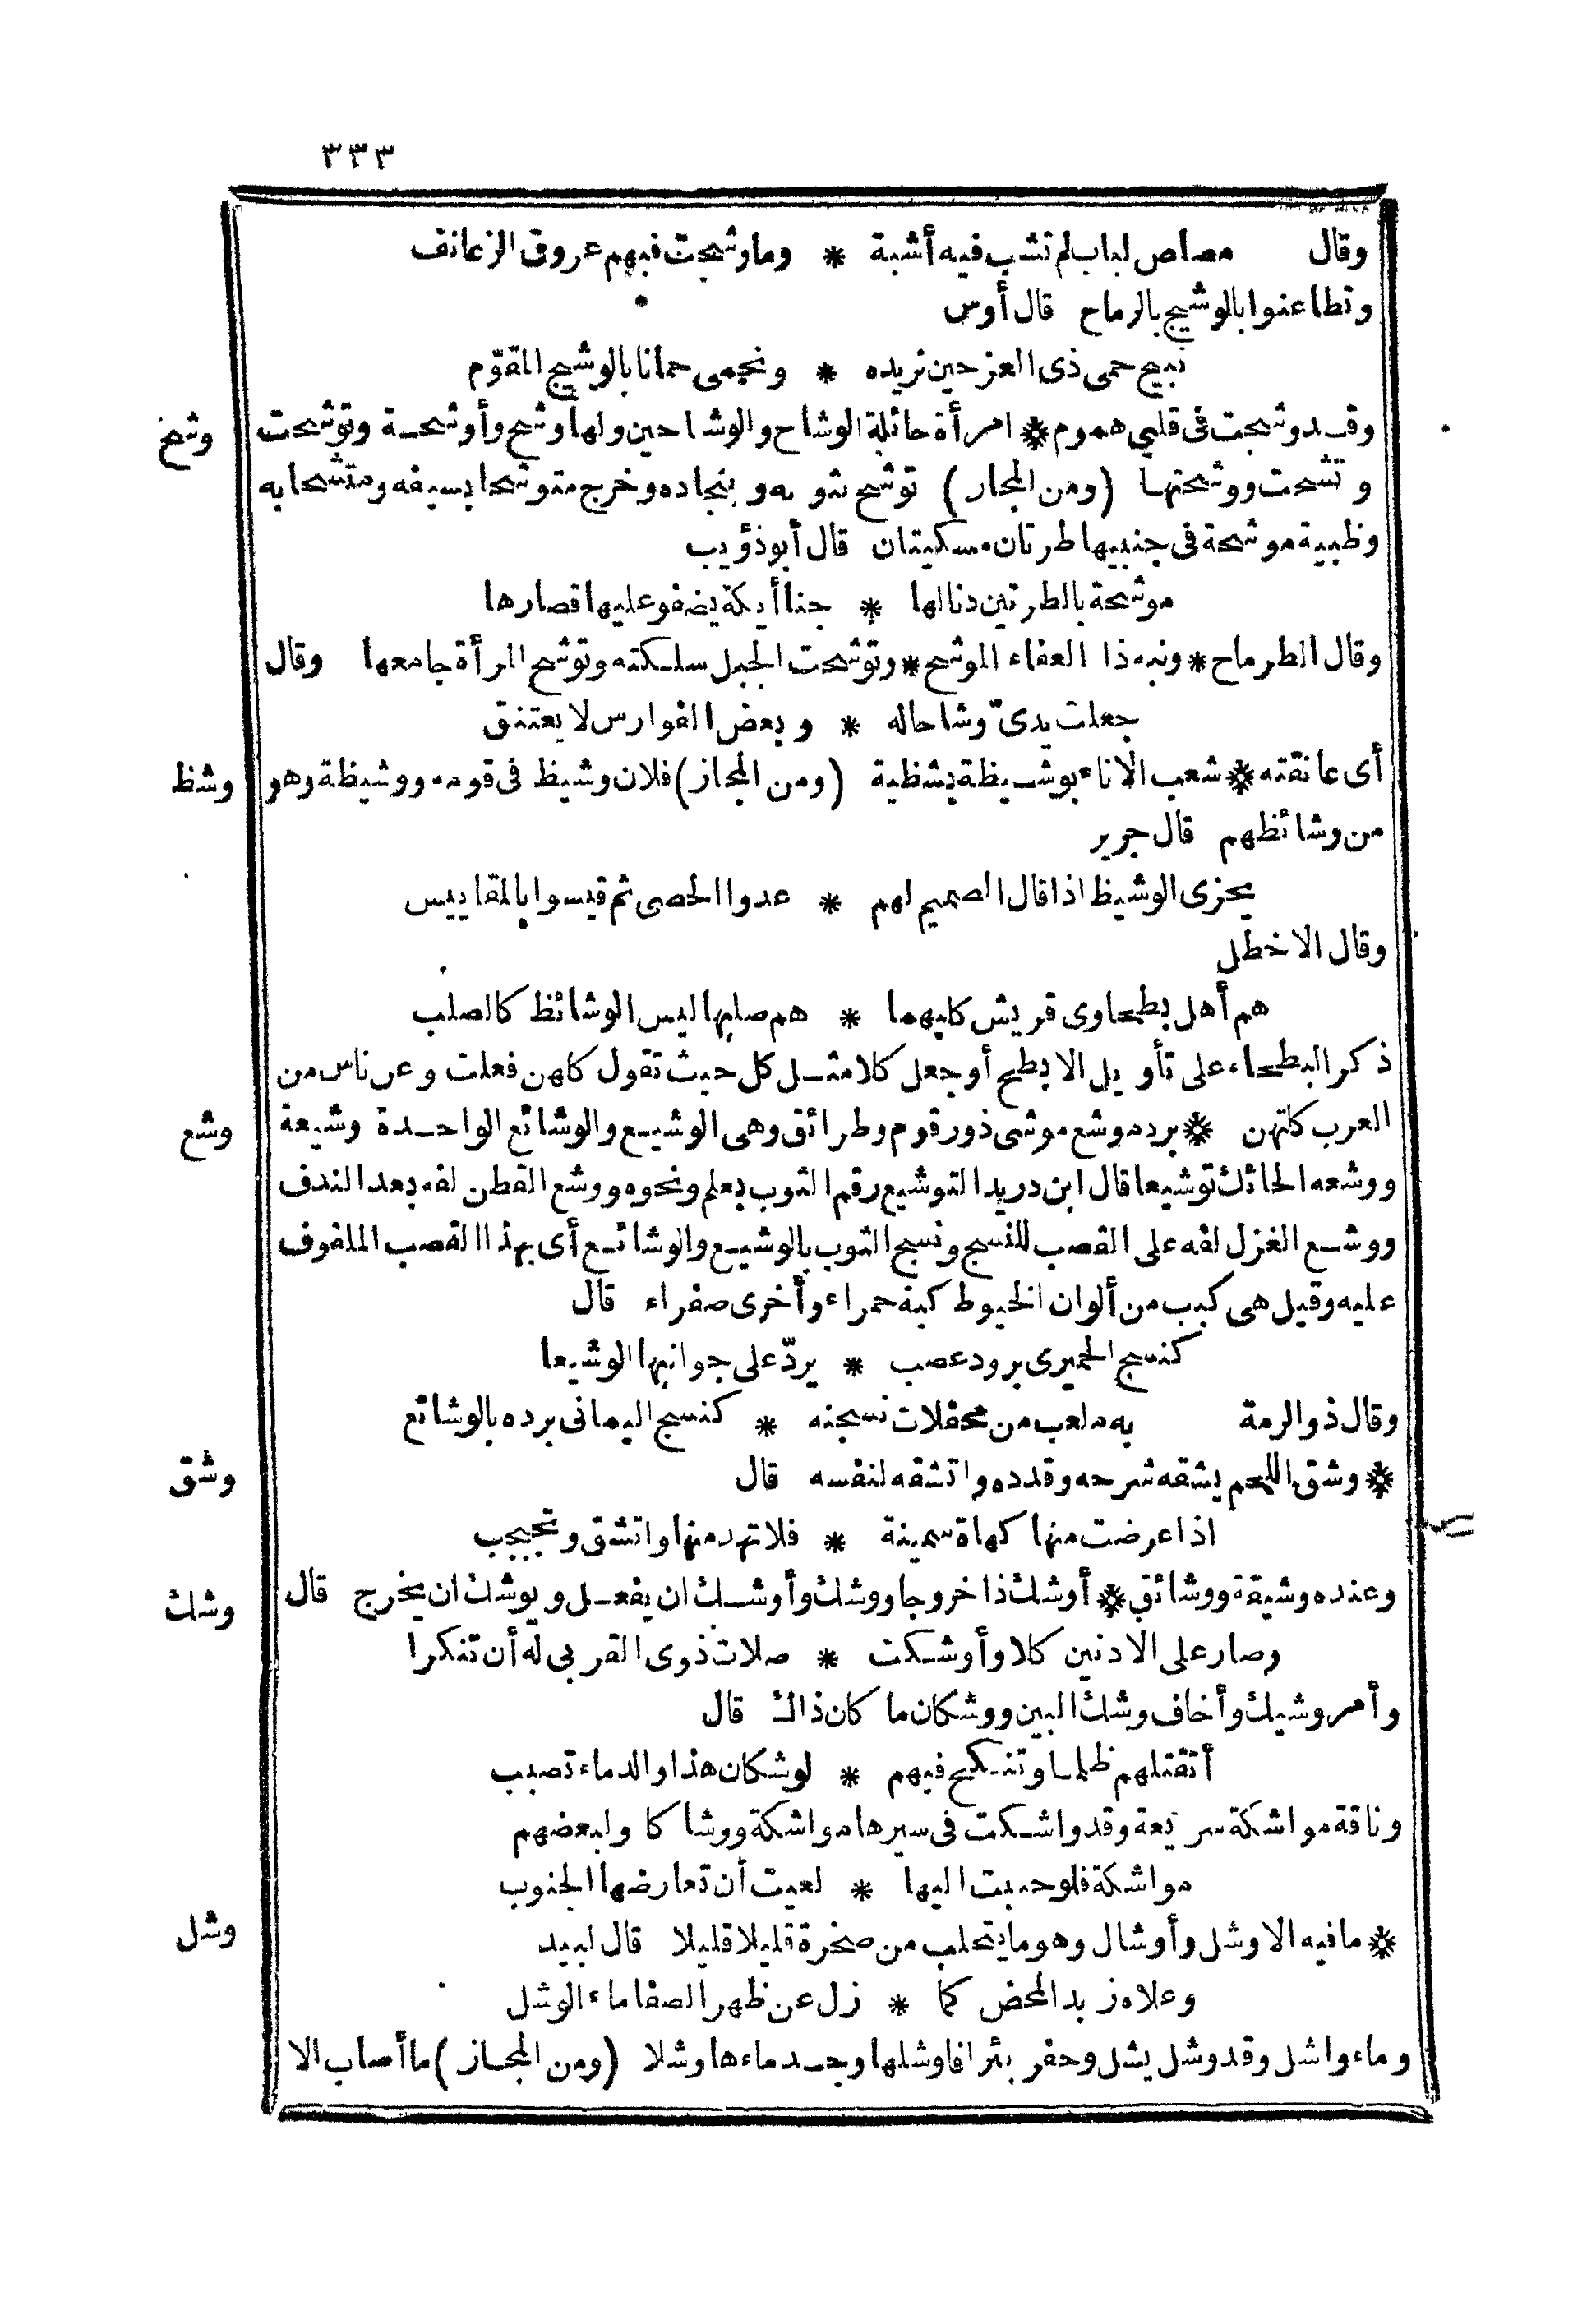 ٣٣٣
وقال مصاص لباب لم تشب فيه أشبة * وما وشجت فيهم عروق الزعانف
وتطاعنوا بالوشيج بالرماح قال أوس
نبيح حمى ذى العز حين نريده * ونحمى حمانا بالوشيج المقوّم
وشح
وقد وشجت فى قلبي هموم * امرأة جائلة الوشاح والوشاحين ولها وشح وأوشحة وتوشحت
وتشحت ووشحتها (ومن المجاز) توشح بثوبه وبنجاده وخرج متوشحا بسيفه ومتشحا به
وظبية موشحة فى جنبيها طرتان مسكيتان قال أبو ذؤيب
موشحة بالطرتين دنا لها * جنا أيكة يضفو عليها قصارها
وقال الطرماح * ونبه ذا العفاء الموشح * وتوشحت الجبل سلكته وتوشح المرأة جامعها وقال
جعلت يدىّ وشاحا له * وبعض الفوارس لا يعتنق
وشظ
أى عانقته * شعب الاناء بوشيظة بشظية (ومن المجاز) فلان وشيظ فى قومه ووشيظة وهو
من وشائظهم قال جرير
يخزى الوشيظ اذا قال الصميم لهم * عدوا الحصى ثم قيسوا بالمقاييس
وقال الاخطل
هم أهل بطحاوى قريش كليهما * هم صلبها ليس الوشائظ كالصلب
ذكر البطحاء على تأويل الابطح أو جعل كلا مثل كل حيث تقول كلهن فعلت وعن ناس من
وشع
العرب كلتهن * برد موشع موشى ذو رقوم وطرائق وهى الوشيع والوشائع الواحدة وشيعة
ووشعه الحائك توشيعا قال ابن دريد التوشيع رقم الثوب بعلم ونحوه ووشع القطن لفه بعد الندف
ووشع الغزل لفه على القصب للنسج ونسج الثوب بالوشيع والوشائع أى بهذا القصب الملفوف
عليه وقيل هى كبب من ألوان الخيوط كبة حمراء وأخرى صفراء قال
كنسج الحميرى برود عصب * يردّ على جوانبها الوشيعا
وقال ذو الرمة به ملعب من محفلات نسجنه * كنسج اليمانى برده بالوشائع
وشق
* وشق اللحم يشقه شرحه وقدده واتشقه لنفسه قال
اذا عرضت منها كهاة سمينة * فلا تهد منها واتشق وتجبجب
وشك
وعنده وشيقة ووشائق * أوشك ذا خروجا ووشك وأوشك ان يفعل ويوشك ان يخرج قال
وصار على الادنين كلا وأوشكت * صلات ذوى القربى له أن تنكرا
وأمر وشيك وأخاف وشك البين ووشكان ما كان ذاك قال
أتقتلهم ظلما وتنكح فيهم * لوشكان هذا والدماء تصبب
وناقة مواشكة سريعة وقد واشكت فى سيرها مواشكة ووشاكا ولبعضهم
مواشكة فلو جنبت اليها * لعيت أن تعارضها الجنوب
وشل
* ما فيه الا وشل وأوشال وهو ما يتحلب من صخرة قليلا قليلا قال لبيد
وعلاه زبد المحض كما * زل عن ظهر الصفا ماء الوشل
وماء واشل وقد وشل يشل وحفر بئرا فاوشلها وجد ماءها وشلا (ومن المجاز) ما أصاب الا